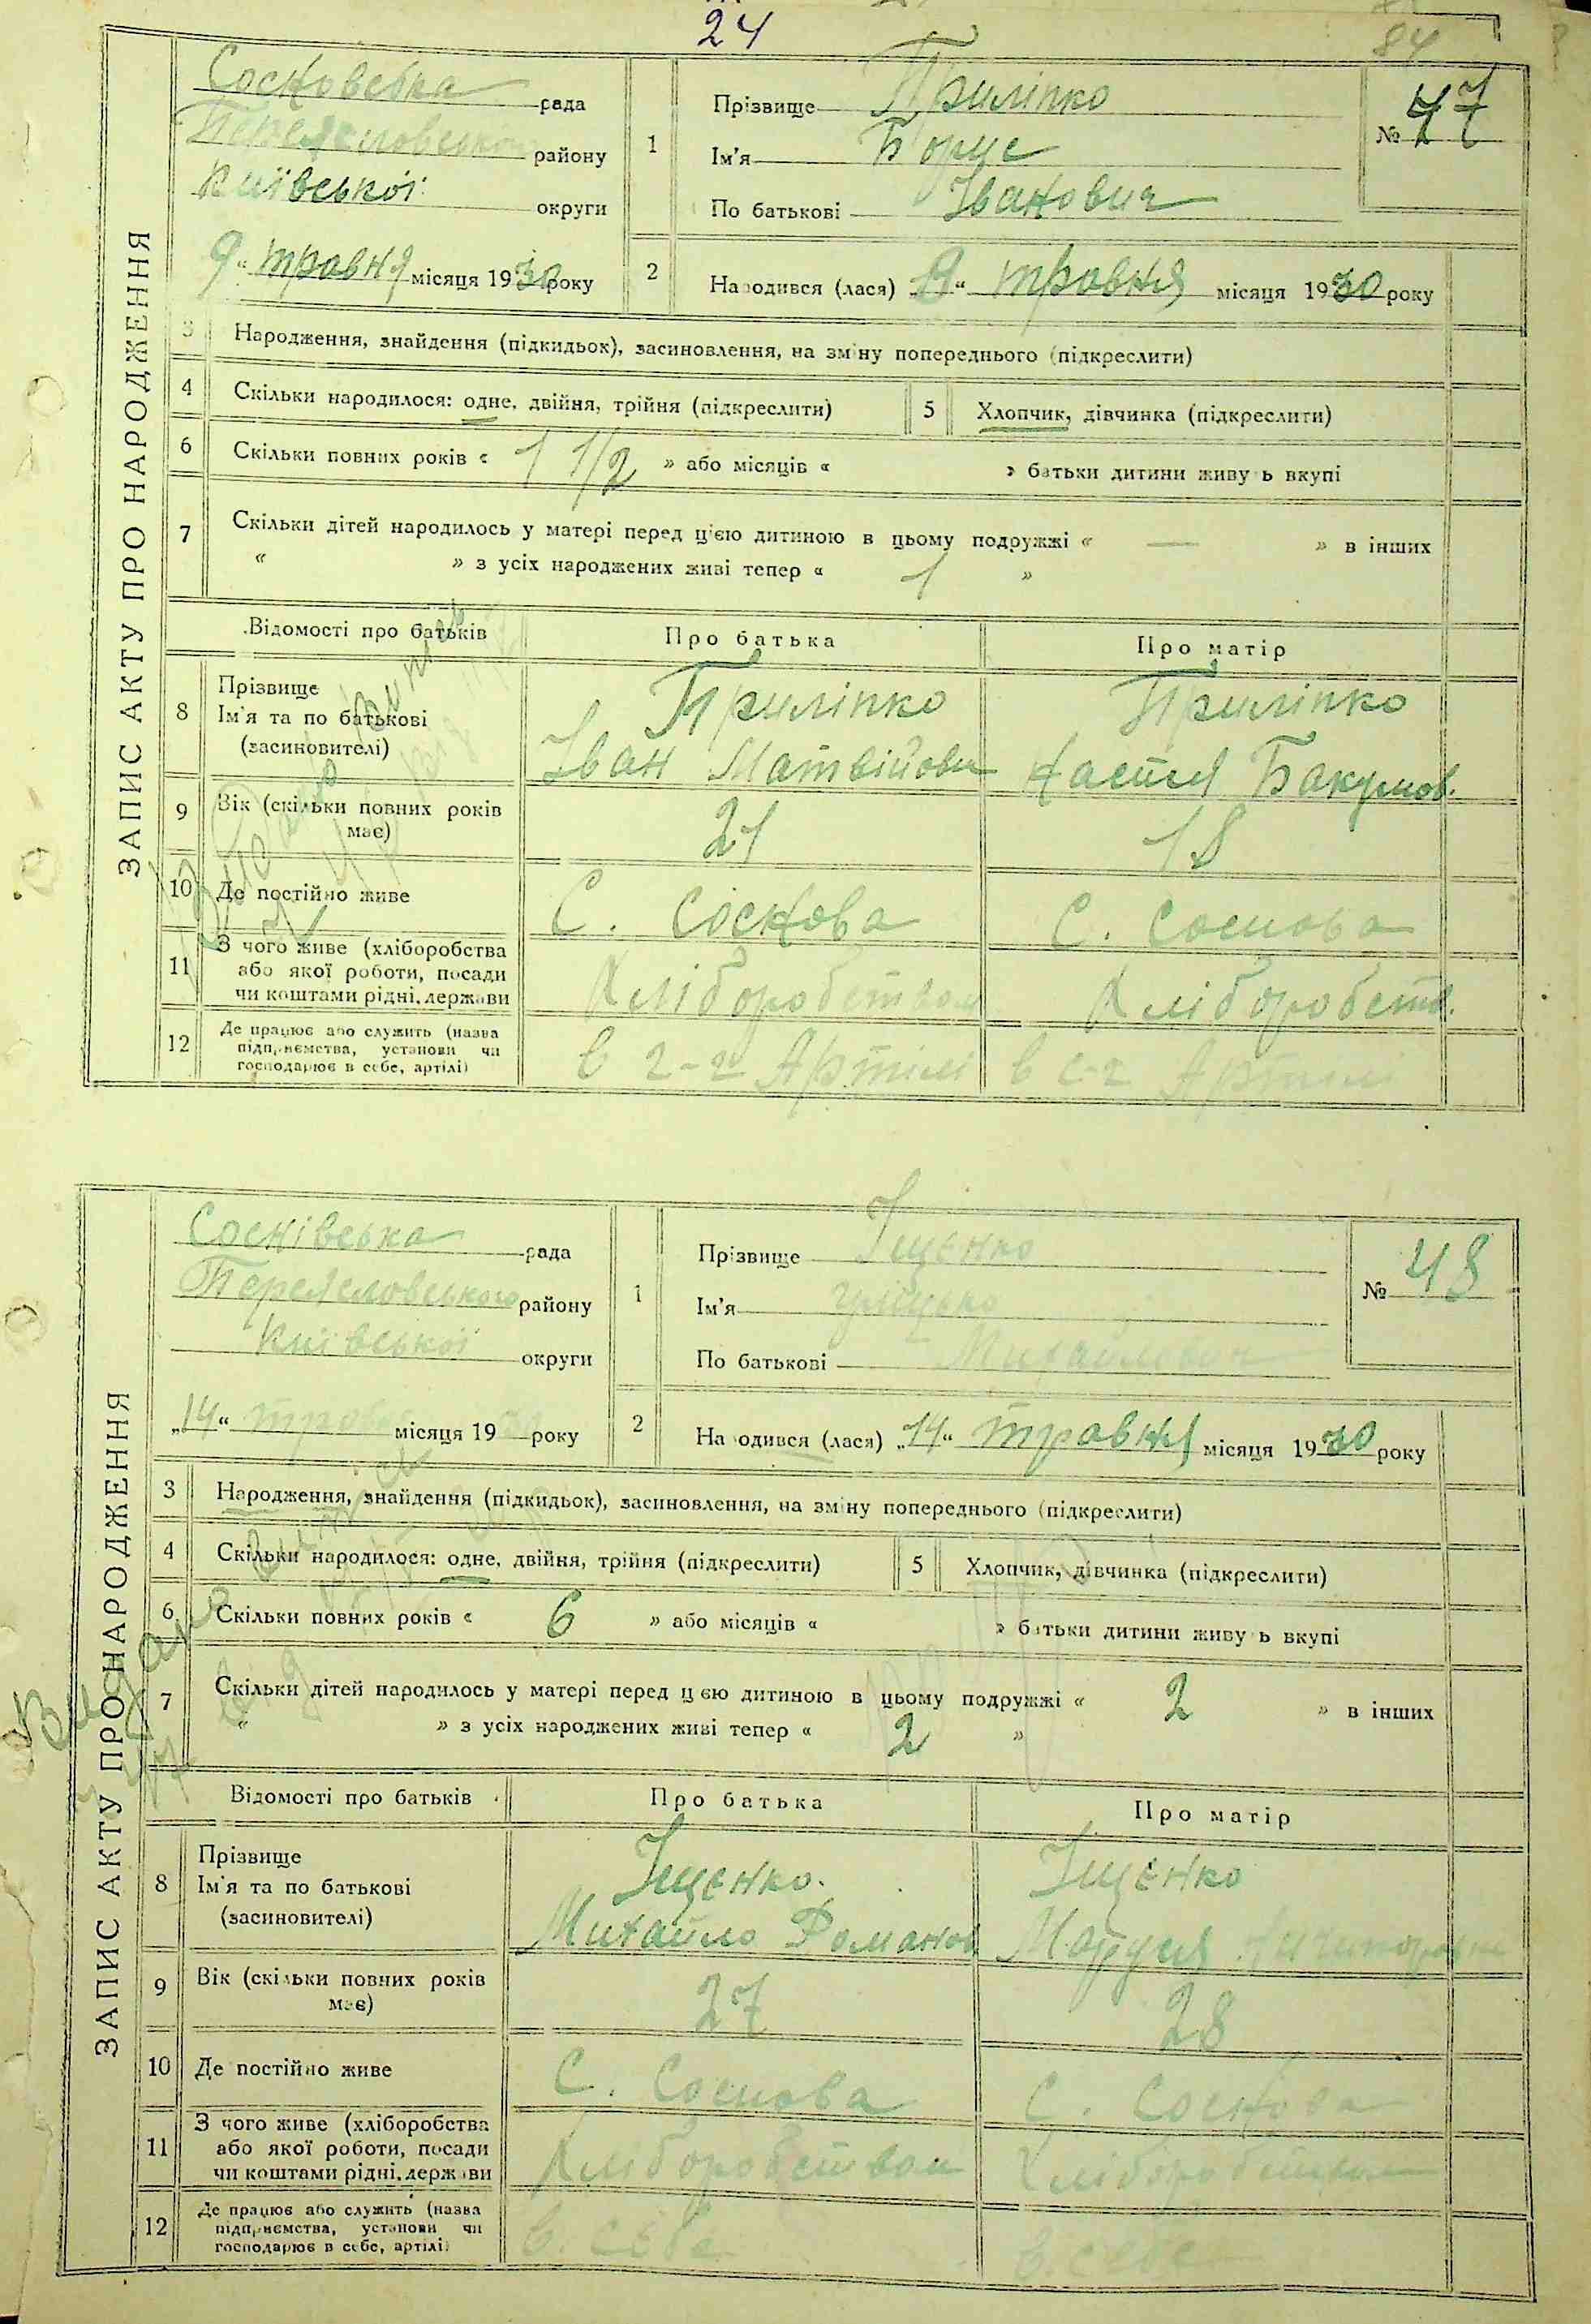 24
84
ЗАПИС АКТУ ПРО НАРОДЖЕННЯ
Сосновська рада
Переясловського району
Київської округи
9 " травня місяця 1930 року
1
Прізвище Приліпко
Ім'я Борис
По батькові Іванович
№ 47
2
Народився (лася) „9" травня місяця 1930 року
3 Народження, знайдення (підкидьок), засиновлення, на зміну попереднього (підкреслити)
4 Скільки народилося: одне, двійня, трійня (підкреслити)
5 Хлопчик, дівчинка (підкреслити)
6 Скільки повних років « 1 1/2 » або місяців « » батьки дитини живуть вкупі
7 Скільки дітей народилось у матері перед цією дитиною в цьому подружжі « — » в інших
« » з усіх народжених живі тепер « 1 »
Відомості про батьків Про батька Про матір
8 Прізвище
Ім'я та по батькові
(засиновителі)
Приліпко
Іван Матвійови
Приліпко
Настя
9 Вік (скільки повних років має)
21 18
10 Де постійно живе
С. Соснова С. Соснова
11 З чого живе (хліборобства
або якої роботи, посади
чи коштами рідні, держави
Хліборобством Хліборобств.
12 Де працює або служить (назва
підприємства, установи чи
господарює в себе, артілі)
в Артілі в с-г Артілі
ЗАПИС АКТУ ПРО НАРОДЖЕННЯ
Соснівська рада
Переясловського району
Київської округи
„14" травня місяця 1930 року
1
Прізвище Іщенко
Ім'я Грицько
По батькові Михайлович
№ 48
2
Народився (лася) „14" травня місяця 1930 року
3 Народження, знайдення (підкидьок), засиновлення, на зміну попереднього (підкреслити)
4 Скільки народилося: одне, двійня, трійня (підкреслити)
5 Хлопчик, дівчинка (підкреслити)
6 Скільки повних років « 6 » або місяців « » батьки дитини живуть вкупі
7 Скільки дітей народилось у матері перед цією дитиною в цьому подружжі « 2 » в інших
« » з усіх народжених живі тепер « 2 »
Відомості про батьків Про батька Про матір
8 Прізвище
Ім'я та по батькові
(засиновителі)
Іщенко.
Михайло Романов
Іщенко
Маруся
9 Вік (скільки повних років має)
27 28
10 Де постійно живе
С. Соснова С. Соснова
11 З чого живе (хліборобства
або якої роботи, посади
чи коштами рідні, держави
Хліборобством Хліборобством
12 Де працює або служить (назва
підприємства, установи чи
господарює в себе, артілі)
в. себе в. себе